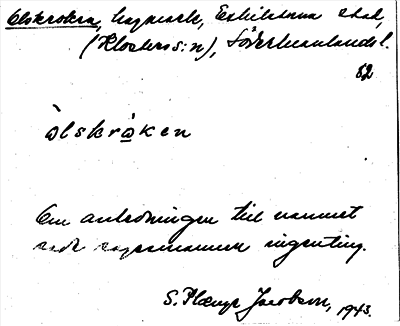 Elskroken, hagmark, Eskilstuna stad,
(Klosters s:n), Södermanlands l.
82
ä̀lskrå̀ken
Om anledningen till namnet
vet sagesmannen ingenting.
S. Plænge Jacobson, 1943.